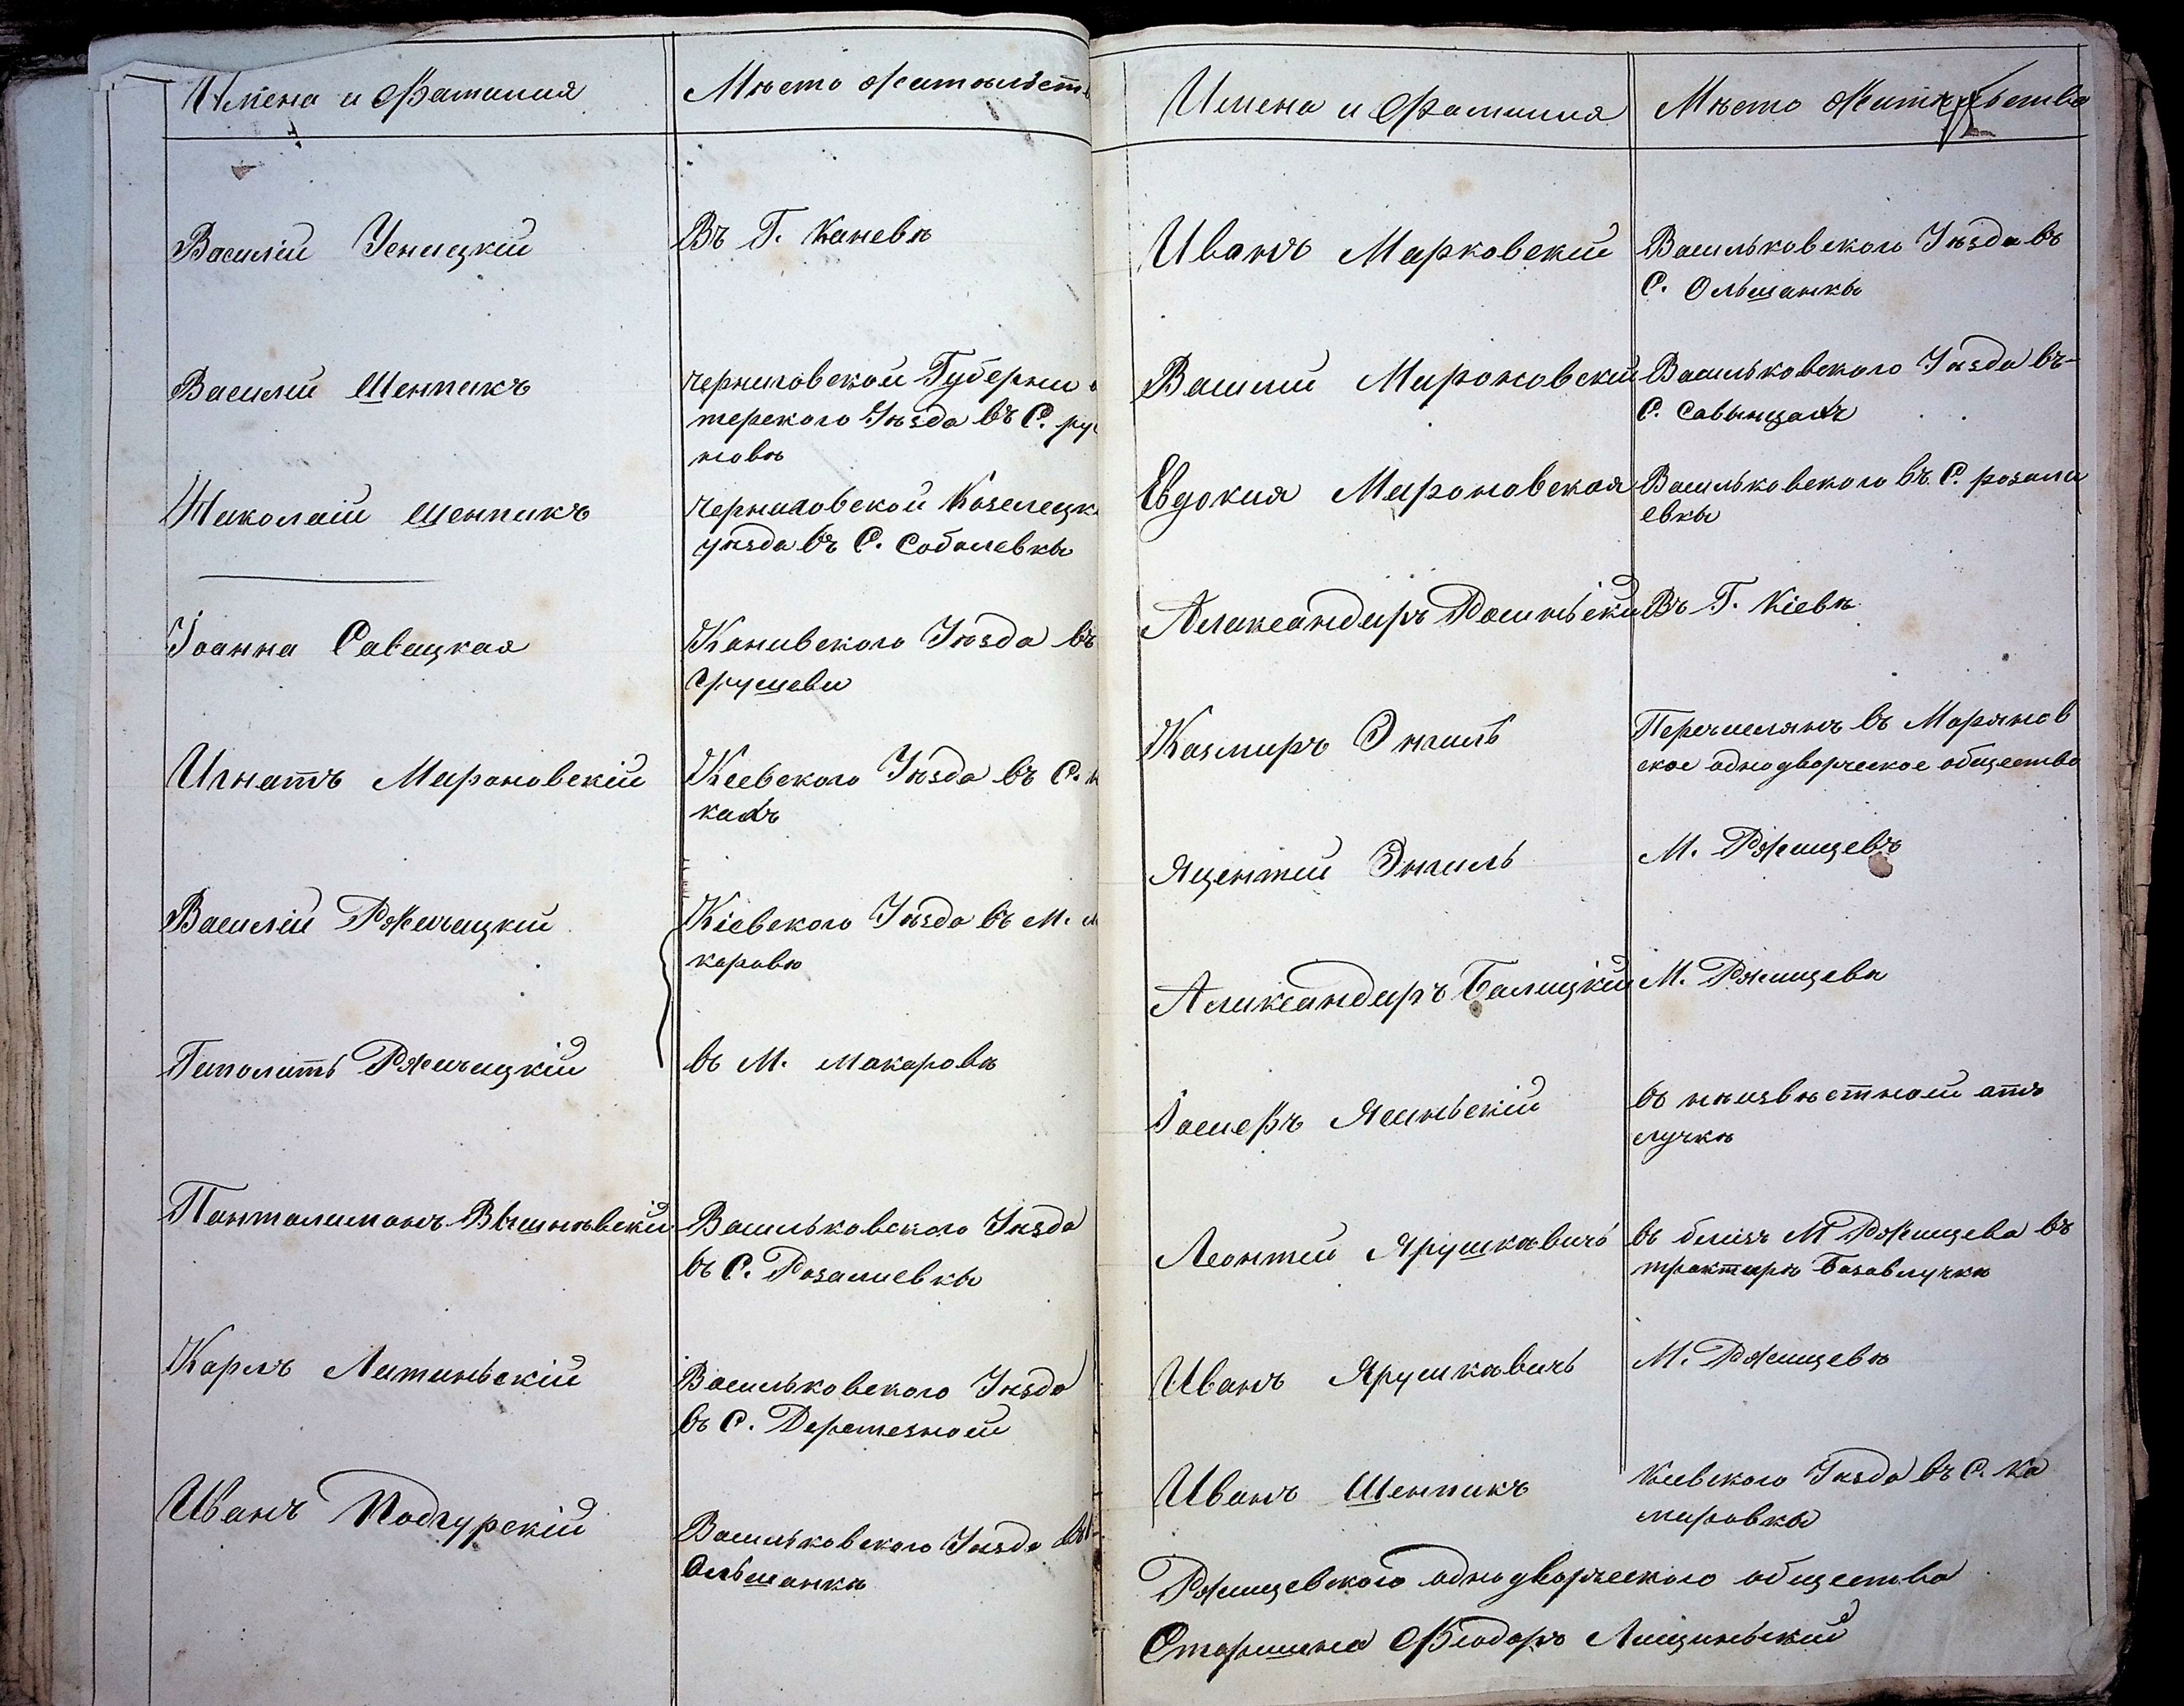 Имена и Фамилия
Мѣсто Жительств
Василій Усницкій
Въ Г. Каневѣ
Василий Шенпикъ
черниговской Губернии о
терского Уѣзда въ С. ру
новѣ
Николай Шенпикъ
черниговской Козелецк
уѣзда въ С. Соболевкы
Іоанна Савицкая
Каневского Уѣзда въ
Грушеви
Игнатъ Мироновскій
Кеевского Уѣзда въ С.
кахъ
Василій Ржечицкій
Кіевского Уѣзда въ М. м
каровѣ
Гиполитъ Ржечицкій
въ М. Макаровѣ
Панталимонъ Вышнѣвскій
Васильковского Уѣзда
въ С. Розалиевкы
Карлъ Литиньскій
Васильковского Уѣзда
въ С. Веремезной
Иванъ Подгурскій
Васильковского Уѣзда въ
Ольшанкѣ
Имена и Фамилия
Мѣсто Жительства
Иванъ Марковский
Васильковского Уѣзда въ
С. Ольшанкы
Василий Мироновский
Васильковского Уѣзда въ
С. Савынцахъ
Евдокия Мироновская
Васильковского въ С. розали
евкы
Александиръ Росиньский
Въ Г. Кіевѣ
Казмиръ Энгиль
Перечислянъ въ Марянов
ское однодворческое общество
Яцентий Энгиль
М. Ржищевъ
Аликсандиръ Балицкий
М. Ржищева
Іосиефъ Ясиньскій
въ нѣизвѣстной атъ
лучкѣ
Леонтий Ярушкѣвичъ
въ близъ М Ржищева въ
трактирѣ Базавлучкѣ
Иванъ Ярушкѣвичъ
М. Ржищевѣ
Иванъ Шенпикъ
Кеевского Уѣзда въ С. Ка
мировкы
Ржищевского однодворческого общества
Старшина Фіодоръ Лищинъский